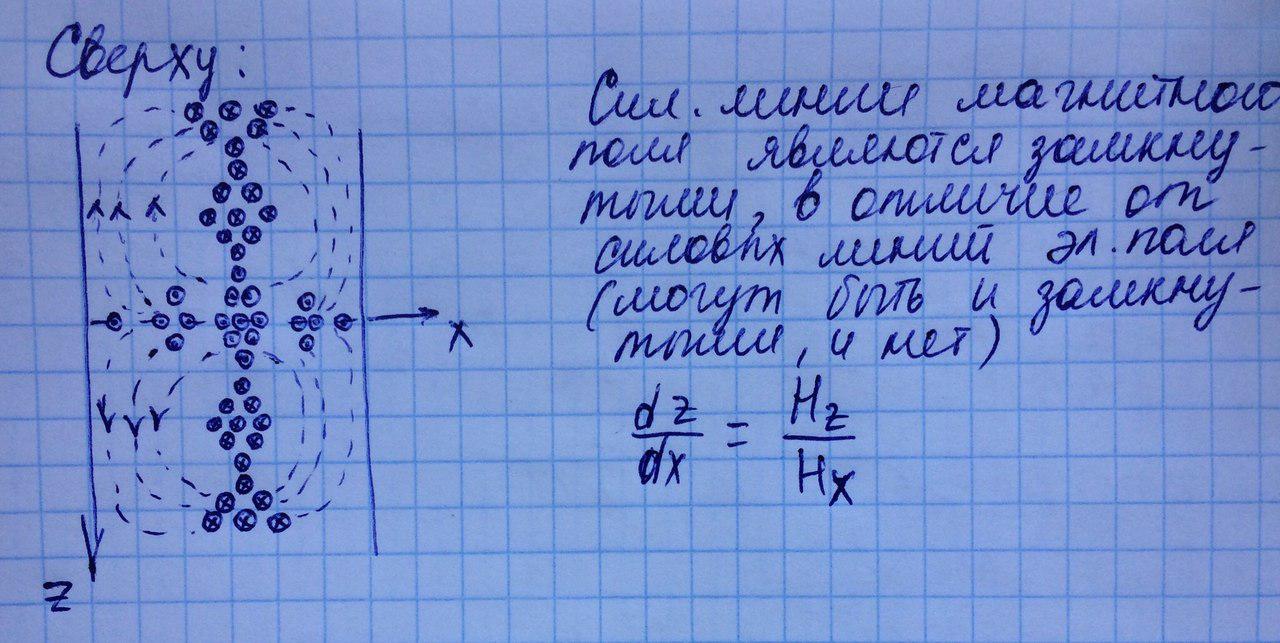 Сверху:
Сил. линии магнитного
поля являются замкну-
тыми, в отличие от
силовых линий эл. поля
(могут быть и замкну-
тыми, и нет)
dz/dx = Hz/Hx
x
z